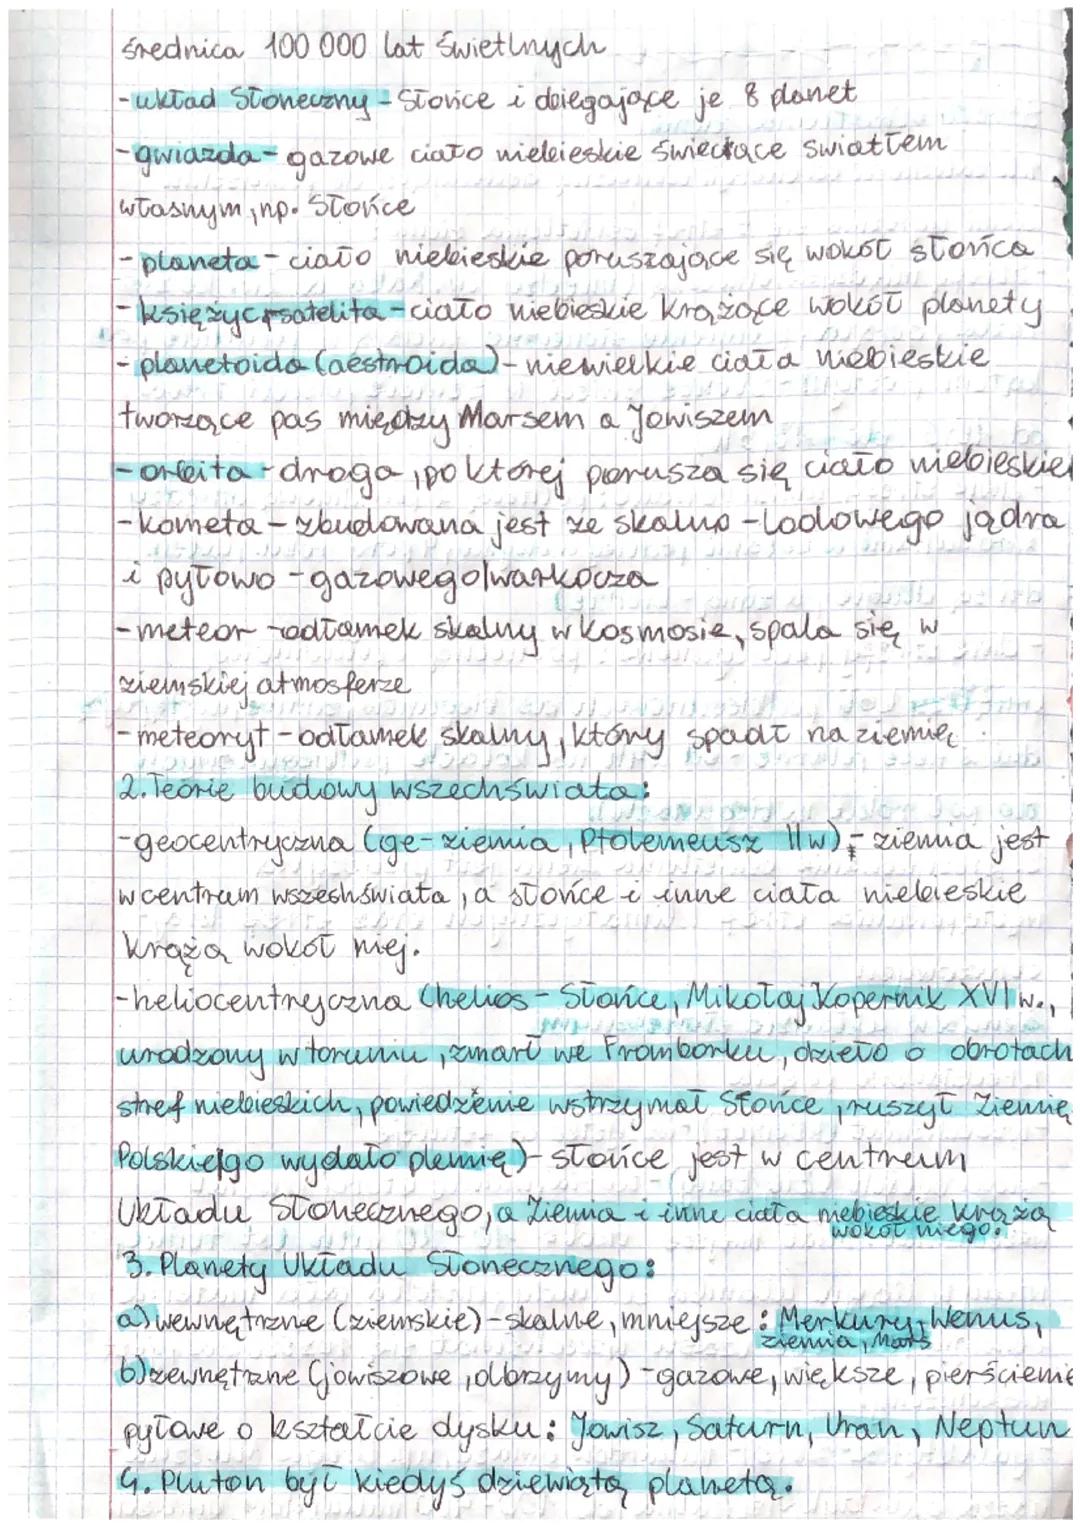 średnica 100 000 lat świetlnych
- układ Słoneczny - Słońce i obiegające je 8 planet
- gwiazda - gazowe ciało niebieskie świecące swiatłem
własnym, np. Słońce
- planeta - ciało niebieskie poruszające się wokół słońca
- księżyc, satelita - ciało niebieskie krążące wokół planety
- planetoida (aestroida) - niewielkie ciała niebieskie
tworzące pas między Marsem a Jowiszem
- orbita - droga, po której porusza się ciało niebieskie
- kometa - zbudowana jest ze skalno - lodowego jądra
i pyłowo - gazowego warkocza
- meteor - odłamek skalny w kosmosie, spala się w
ziemskiej atmosferze
- meteoryt - odłamek skalny, który spadł na ziemię.
2. Teorie budowy wszechświata:
- geocentryczna (ge - ziemia, Ptolemeusz II w) - ziemia jest
w centrum wszeshświata, a słońce i inne ciała niebieskie
krążą wokół niej.
- heliocentryczna (helios - Słońce, Mikołaj Kopernik XVI w.,
urodzony w toruniu, zmarł we Fromborku, dzieło o obrotach
stref niebieskich, powiedzenie wstrzymał Słońce, ruszył Ziemię
Polskie go wydało plemię) - słońce jest w centrum
Układu Słonecznego, a Ziemia i inne ciała niebieskie krążą
wokół niego.
3. Planety Układu Słonecznego:
a) wewnętrzne (ziemskie) - skalne, mniejsze : Merkury, Wenus,
ziemia, Mars
b) zewnętrzne (jowiszowe, olbrzymy) - gazowe, większe, pierścienie
pyłowe o kształcie dysku: Jowisz, Saturn, Uran, Neptun
4. Pluton był kiedyś dziewiątą planetą.